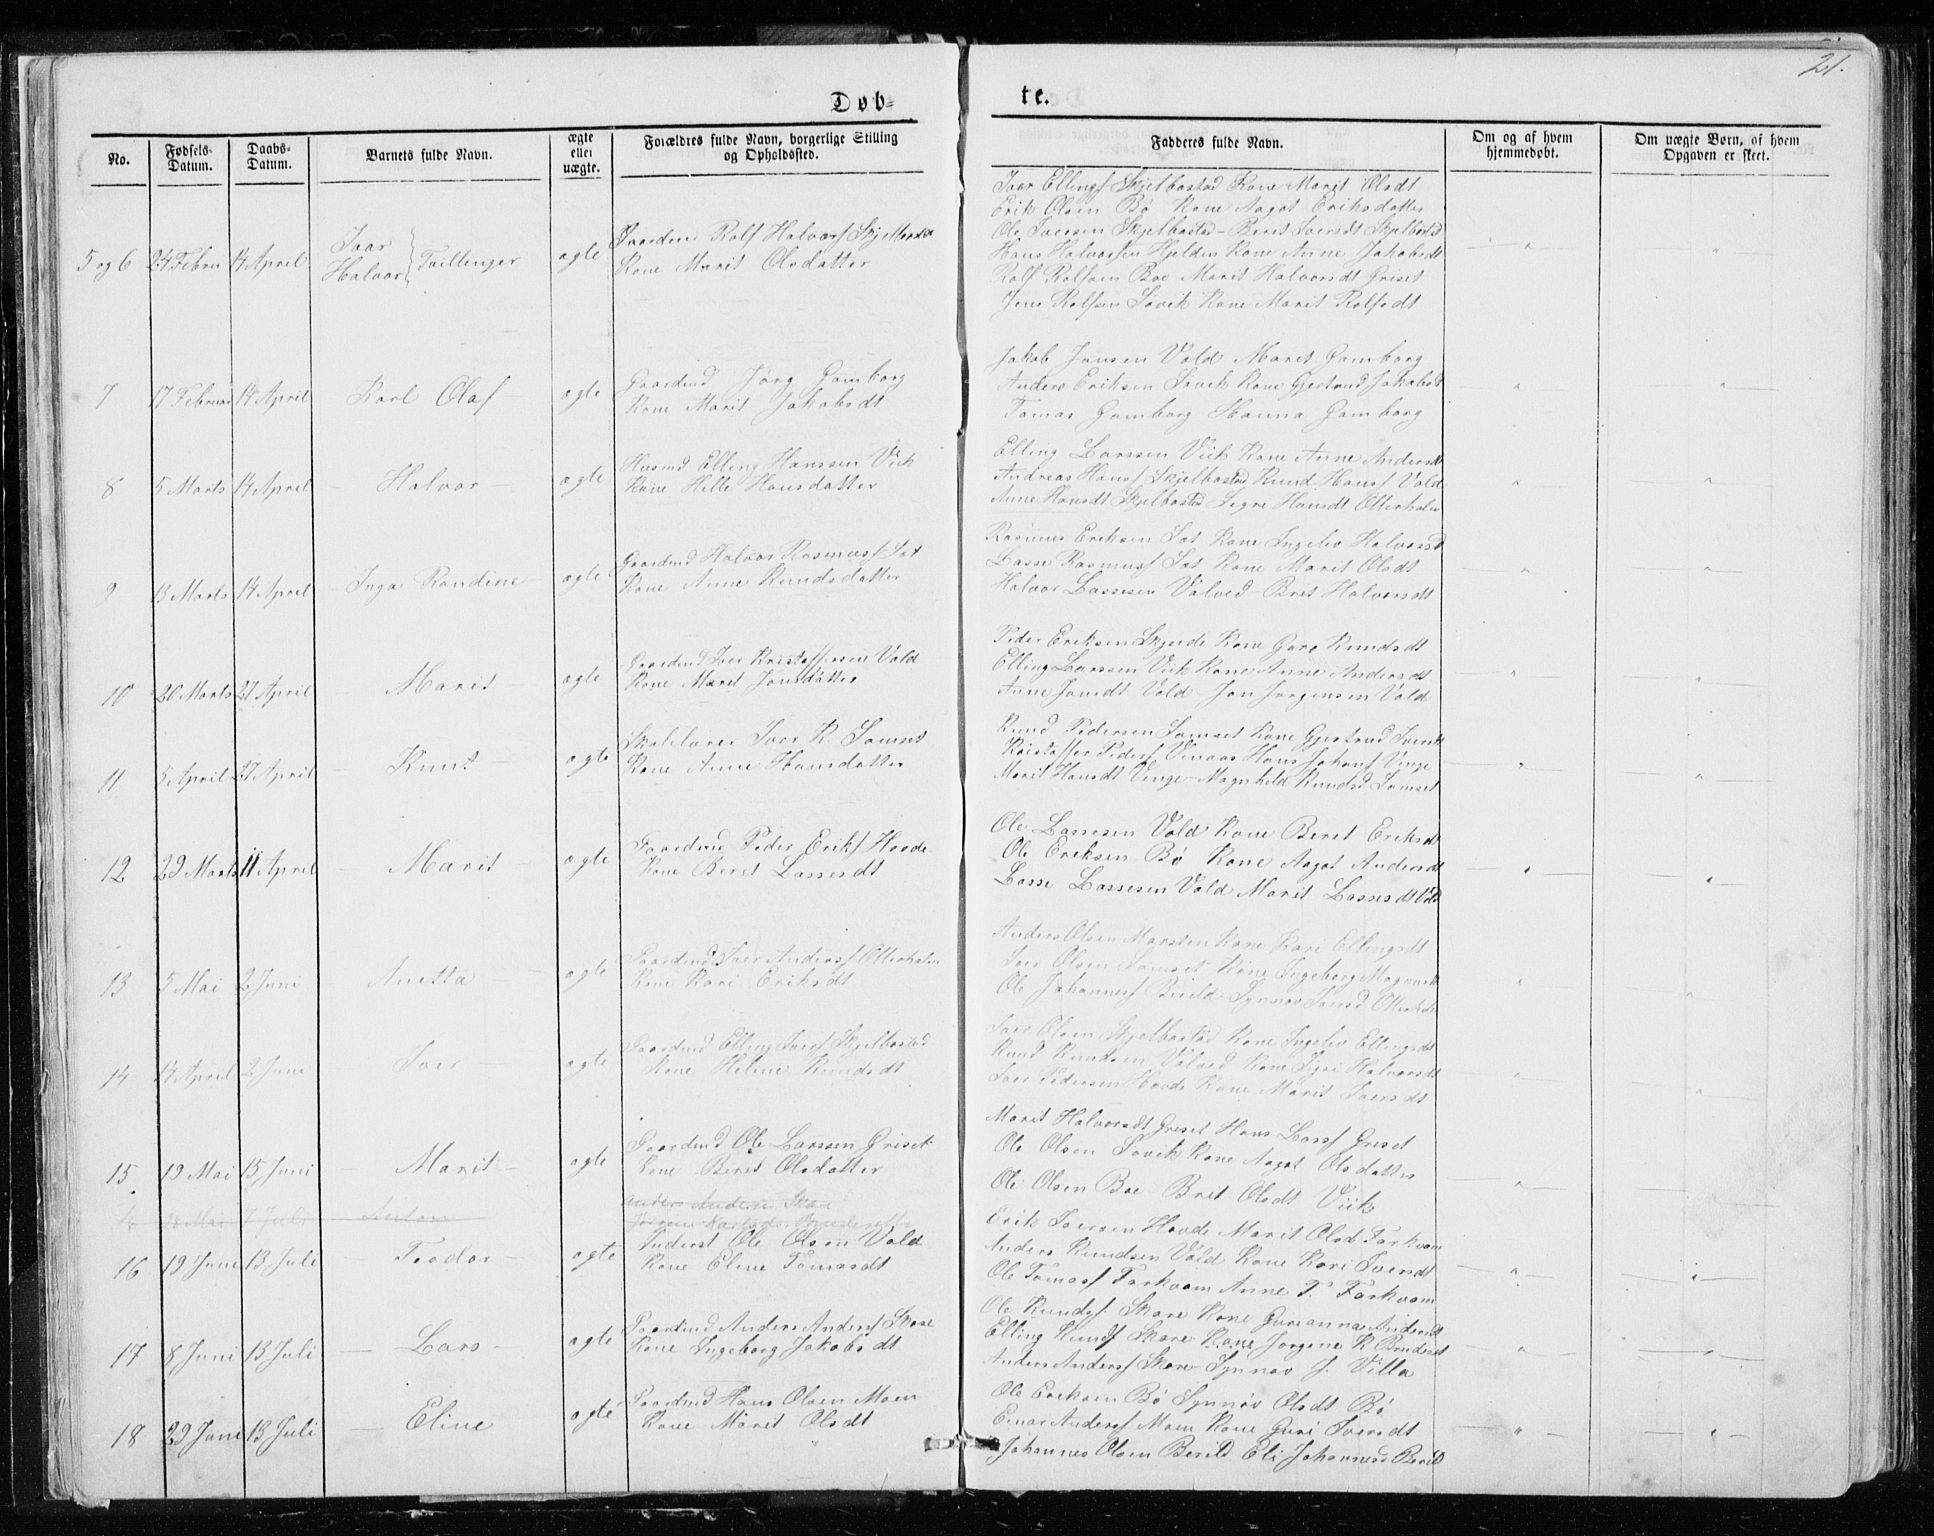 21.
Døb-
te.
No.
Fødsels-Datum.
Daabs-Datum.
Barnets fulde Navn.
ægte eller uægte.
Forældres fulde Navn, borgerlige Stilling og Opholdssted.
Fadderes fulde Navn.
Om og af hvem hjemmedøbt.
Om uægte Børn, af hvem Opgaven er skeet.
5 og 6 24 Febru 14 April Ivar Halvor Tvillinger ægte
Gaardm Rolf Halvors Skjelbostad
Kone Marit Olsdatter
Ivar Ellings Skjelbostad Kone Marit Olsdt
Erik Olsen Bø Kone Aagot Eriksdatter
Ole Iversen Skjelbostad - Berit Iversdt Skjelbostd
Hans Halvorsen Hjelden Kone Anne Jakobsdt
Rolf Rolfsen Boe Marit Halvorsdt Griset
Jens Rolfsen Sovik Kone Marit Rolfsdt
7 17 Februar 14 April Karl Olaf ægte
Gaardmd Jørg Gamborg
Kone Marit Jakobsdt
Jakob Jansen Vold Marit Gamborg
Anders Eriksen Sovik Kone Gjertrud Jakobsd
Tomas Gamborg Hanna Gamborg
8 5 Marts 14 April Halvor ægte
Husmd Elling Hanssen Viik
Kone Hille Hansdatter
Elling Larssen Viik Kone Anne Andersdt
Andreas Hans Skjelbostad Knud Hans Vold
Anne Hansdt Skjelbostad Sigre Hansdt Otterholm
9 13 Marts 14 April Inga Randine ægte
Gaardmd Halvor Rasmus Sat
Kone Anne Knudsdatter
Rasmus Eriksen Sat Kone Ingeliv Halvorsd
Lasse Rasmus Sat Kone Marit Olsdt
Halvor Lassesen Valved Bret Halvorsdt
10 26 Marts 27 April Marit ægte
Gaardmd Iver Kristoffersen Vold
Kone Maret Jonsdatter
Peder Eriksen Kone Guro Knudsdt
Elling Larssen Viik Kone Anne Andersdt
Anne Jonsdt Vold Jon Jorgensen Vold
11 5 April 27 April Knut ægte
Skolelærer Iver K. Somset
Kone Anne Hansdatter
Knud Pedersen Somset Kone Gjertrud Iversdt
Kristoffer Peders Vinaas Hans Johans Vinge
Marit Hansdt Vinge Magnhild Knudsd Somset
12 29 Marts 11 April Marit ægte
Gaardmd Peder Eriks Hovde
Kone Beret Lassesdt
Ole Lassesen Vold Kone Beret Eriksdt
Ole Eriksen Bø Kone Aagot Andersdt
Lasse Lassesen Vold Marit Lassesdt Vold
13 5 Mai 2 Juni Anetta ægte
Gaardmd Iver Anders Otterholm
Kone Kari Eriksdt
Anders Olsen Marsten Kone Kari Ellingsdt
Iver Olsen Somset Kone Ingeborg Magnusdt
Ole Johannes Berild Synnov Iversd Otterholm
14 14 April 2 Juni Iver ægte
Gaardmd Elling Ivers Skjelbostad
Kone Heline Knudsdt
Iver Olsen Skjelbostad Kone Ingeliv Ellingsdt
Knud Knudsen Valved Kone Sigri Halvorsdt
Iver Pedersen Hovde Kone Marit Iversdt
15 19 Mai 15 Juni Marit ægte
Gaardmd Ole Larssen Griset
Kone Beret Olsdatter
Marit Halvorsdt Griset Hans Lars Griset
Ole Olsen Sovik Kone Aagot Olsdatter
Ole Olsen Boe Brit Olsdt Viik
16 Mai 7 Juli Anton
Anders Skare
16 19 Juni 13 Juli Teodor ægte
Inderst Ole Olsen Vold
Kone Eline Tomasdt
Erik Iversen Hovde Marit Olsd Torkvam
Anders Knudsen Vold Kone Kari Iversdt
Ole Tomas Torkvam Anne T. Torkvam
17 8 Juni 13 Juli Lars ægte
Gaardmd Anders Anders Skare
Kone Ingeborg Jakobsdt
Ole Knuds Skare Kone Gurianna Andersdt
Elling Knuds Skare Kone Jorgene K Brudeset
Anders Anders Skare Synnov J. Villa
18 29 Juni 13 Juli Eline ægte
Gaardmd Hans Olsen Moen
Kone Marit Olsdt
Ole Eriksen Bø Synnøv Olsdt Bø
Einar Anders Moen Kone Guri Iversdt
Johannes Olsen Berild Eli Johannesd Berild